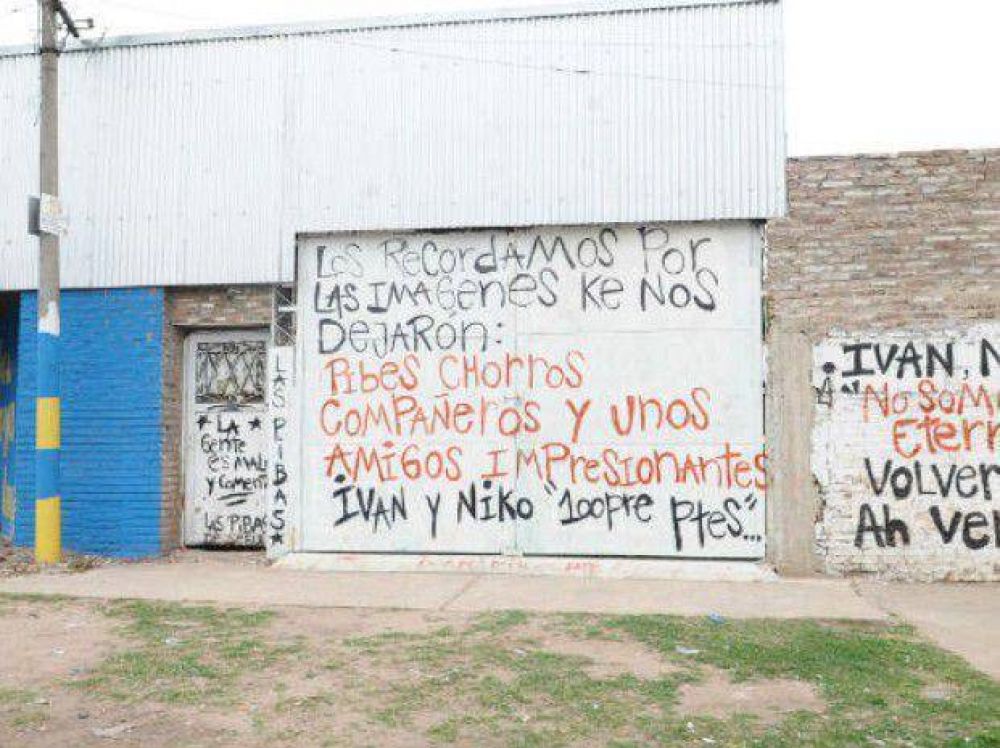 Los RecordAmos Por
LAS IMAGenes Ke Nos
DeJARón:
PiBes CHorros
CompAñeros y unos
AmiGos ImPresionAntes
IVAn y Niko "100pre Ptes"...
LA
Gente
es mALA
y Coment
LAS PIBAS
LAS PIBAS
IVAN, N
"No Som
Eterr
Volver
Ah Ver